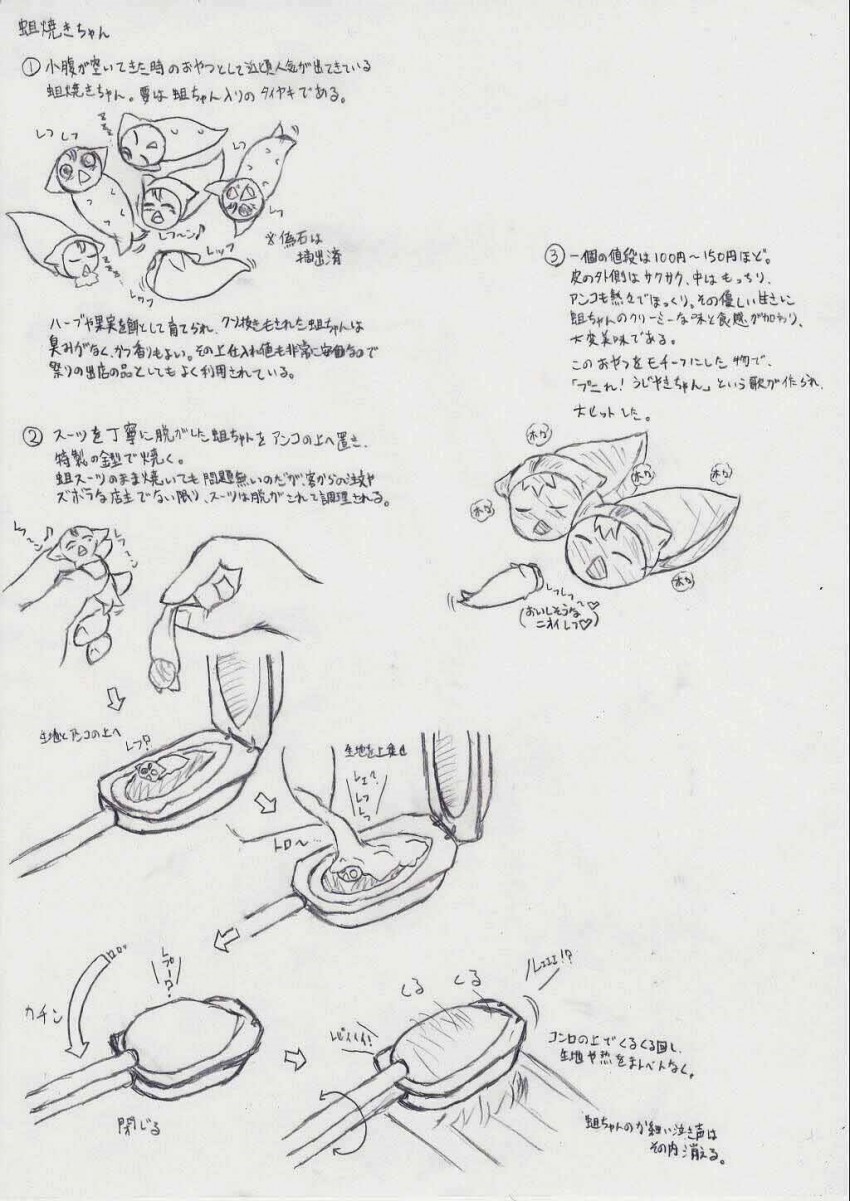 蛆焼きちゃん
① 小腹が空いてきた時のおやつとして近頃人気が出てきている
蛆焼きちゃん。要は蛆ちゃん入りのタイヤキである。
レフ レフ
レフ
レフ
レフ〜ン♪
レッフ
レフッ
※偽石は
摘出済
ハーブや果実を餌として育てられ、クソ抜きもされた蛆ちゃんは
臭みがなく、かつ香りもよい。その上仕入れ値も非常に安価なので
祭りの出店の品としてもよく利用されている。
② スーツを丁寧に脱がした蛆ちゃんをアンコの上へ置き、
特製の金型で焼く。
蛆スーツのまま焼いても問題無いのだが、客からの注文や
ズボラな店主でない限り、スーツは脱がされて調理される。
レフ〜ン♪
レフ〜ン
生地とアンコの上へ
レフ?
生地を上乗せ
レェ?
レフ
レフ
トロ〜…
カチン
レプー?
閉じる
レピィィィ!
くる くる
レェェェ!?
コンロの上でくるくる回し、
生地や熱をまんべんなく。
蛆ちゃんのか細い泣き声は
その内消える。
③ 一個の値段は100円〜150円ほど。
皮の外側はサクサク、中はもっちり、
アンコも熱々でほっくり。その優しい甘さに
蛆ちゃんのクリーミーな味と食感が加わり、
大変美味である。
このおやつをモチーフにした物で、
「プニれ!うじやきちゃん」という歌が作られ、
大ヒットした。
ホカ
ホカ
ホカ
ホカ
ホカ
レフレフ〜♡
(おいしそうな
ニオイレフ♡)